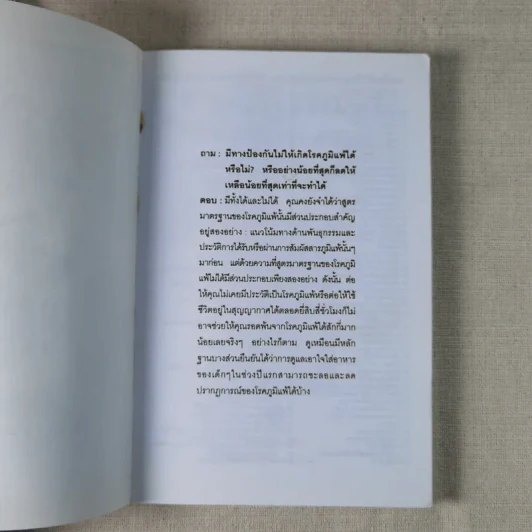 ถาม : มีทางป้องกันไม่ให้เกิดโรคภูมิแพ้ได้
หรือไม่? หรืออย่างน้อยที่สุดก็ลดให้
เหลือน้อยที่สุดเท่าที่จะทำได้
ตอบ : มีทั้งได้และไม่ได้ คุณคงยังจำได้ว่าสูตร
มาตรฐานของโรคภูมิแพ้นั้นมีส่วนประกอบสำคัญ
อยู่สองอย่าง : แนวโน้มทางด้านพันธุกรรมและ
ประวัติการได้รับหรือผ่านการสัมผัสสารภูมิแพ้นั้นๆ
มาก่อน แต่ด้วยความที่สูตรมาตรฐานของโรคภูมิ
แพ้ไม่ได้มีส่วนประกอบเพียงสองอย่าง ดังนั้น ต่อ
ให้คุณไม่เคยมีประวัติเป็นโรคภูมิแพ้หรือต่อให้ใช้
ชีวิตอยู่ในสุญญากาศได้ตลอดยี่สิบสี่ชั่วโมงก็ไม่
อาจช่วยให้คุณรอดพ้นจากโรคภูมิแพ้ได้สักกี่มาก
น้อยเลยจริงๆ อย่างไรก็ตาม ดูเหมือนมีหลัก
ฐานบางส่วนยืนยันได้ว่าการดูแลเอาใจใส่อาหาร
ของเด็กๆในช่วงปีแรกสามารถชะลอและลด
ปรากฏการณ์ของโรคภูมิแพ้ได้บ้าง